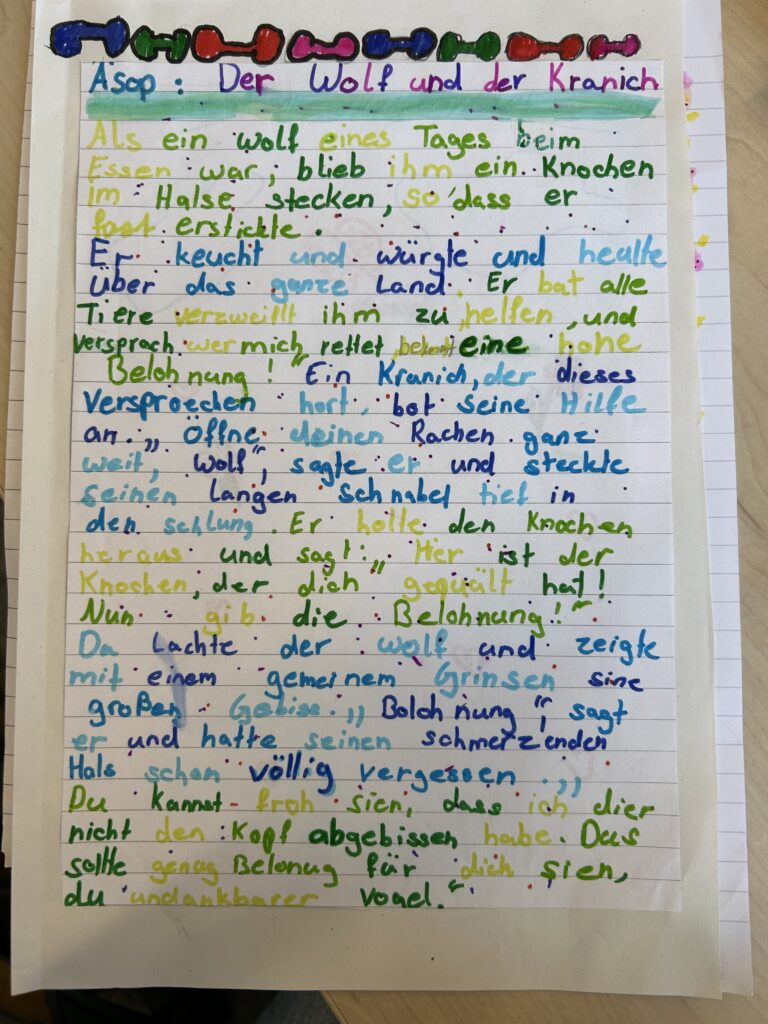 Äsop : Der Wolf und der Kranich
Als ein wolf eines Tages beim
Essen war, blieb ihm ein Knochen
im Halse stecken, so dass er
fast erstickte.
Er keucht und würgte und heulte
über das ganze Land. Er bat alle
Tiere verzweiflt ihm zu helfen, und
versprach wer mich rettet eine hohe
Belohnung!" Ein Kranich, der dieses
Versproechen hort, bot seine Hilfe
an. „ Öffne deinen Rachen ganz
weit, Wolf", sagte er und steckte
seinen Langen Schnabel tief in
den schlung. Er holte den Knochen
heraus und sagt: „ Hier ist der
Knochen, der dich gequält hat!
Nun gib die Belohnung!"
Da Lachte der wolf und zeigte
mit einem gemeinem Grinsen sine
großen Gebiss. „ Boloh nung", sagt
er und hatte seinen schmerzenden
Hals schon völlig vergessen. „
Du kannst froh sien, dass ich dier
nicht den Kopf abgebissen habe. Das
sollte genug Belonug für dich sien,
du undankbarer vogel."